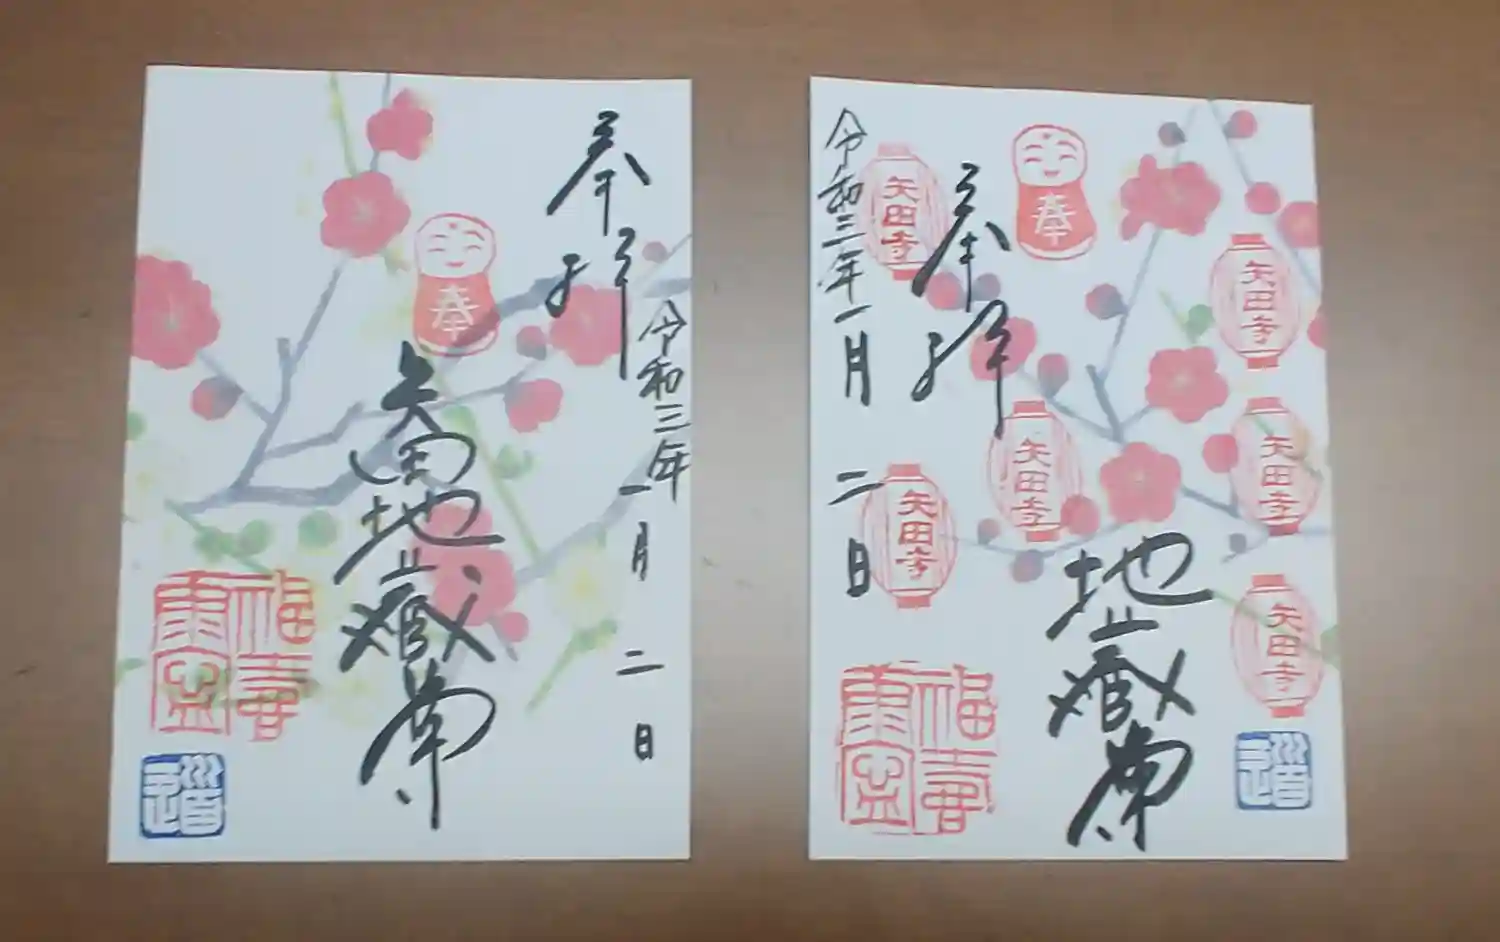 奉拝
令和三年一月二日
奉
矢田地蔵尊
福寿
道
令和三年一月二日
奉拝
奉
矢田寺
矢田寺
矢田寺
矢田寺
矢田寺
矢田寺
地蔵尊
道